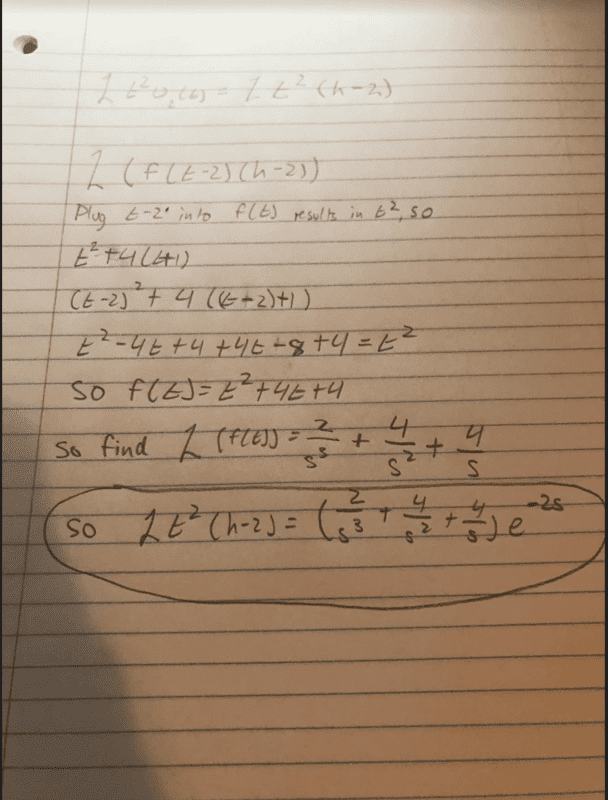 ℒ t² u₂(t) = ℒ t² (h-2)
ℒ (f(t-2)(h-2))
Plug t-2 into f(t) results in t², so
t²+4(t+1)
(t-2)² + 4((t-2)+1)
t²-4t+4+4t-8+4=t²
so f(t)=t²+4t+4
so find ℒ (f(t)) = 2/s³ + 4/s² + 4/s
so ℒ t² (h-2) = (2/s³ + 4/s² + 4/s) e^-2s